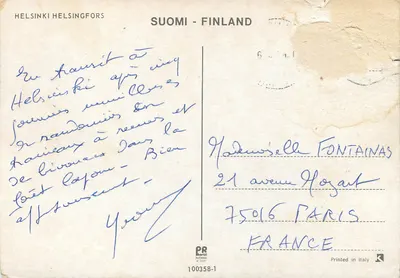 HELSINKI HELSINGFORS
SUOMI - FINLAND
En transit à
Helsinki après cinq
journées merveilleuses
de randonnées en
traineaux à rennes et
de bivouacs dans la
forêt lapone. Bien
affectueusement.
Yvonne
Mademoiselle FONTAINAS
21 avenue Mozart
75016 PARIS
FRANCE
PR
100358-1
Printed in Italy
K